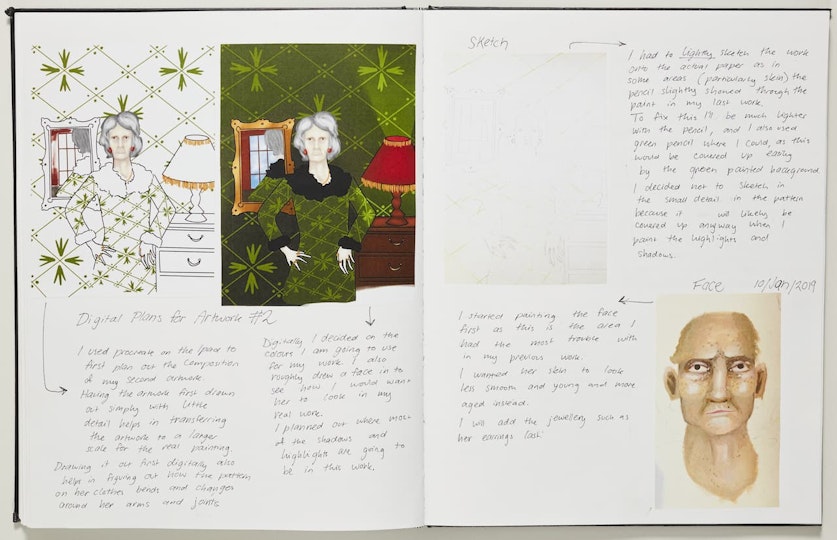 Digital Plans for Artwork #2
I used procreate on the ipad to
first plan out the composition
of my second artwork.
Having the artwork first drawn
out simply with little
detail helps in transferring
the artwork to a larger
scale for the real painting
Drawing it out first digitally also
helps in figuring out how the pattern
on her clothes bends and changes
around her arms and joints
Digitally I decided on the
colours I am going to use
for my work. I also
roughly drew a face in to
see how I would want
her to look in my
real work.
I planned out where most
of the shadows and
highlights are going to
be in this work.
Sketch
I had to lightly sketch the work
onto the actual paper as in
some areas (particularly skin) the
pencil slightly showed through the
paint in my last work.
To fix this I'll be much lighter
with the pencil, and I also used
green pencil where I could, as this
would be covered up easily
by the green painted background.
I decided not to sketch in
the small detail in the pattern
because it will likely be
covered up anyway when I
paint the highlights and
shadows.
Face 10/Jan/2019
I started painting the face
first as this is the area I
had the most trouble with
in my previous work.
I wanted her skin to look
less smooth and young and more
aged instead.
I will add the jewellery such as
her earrings last.